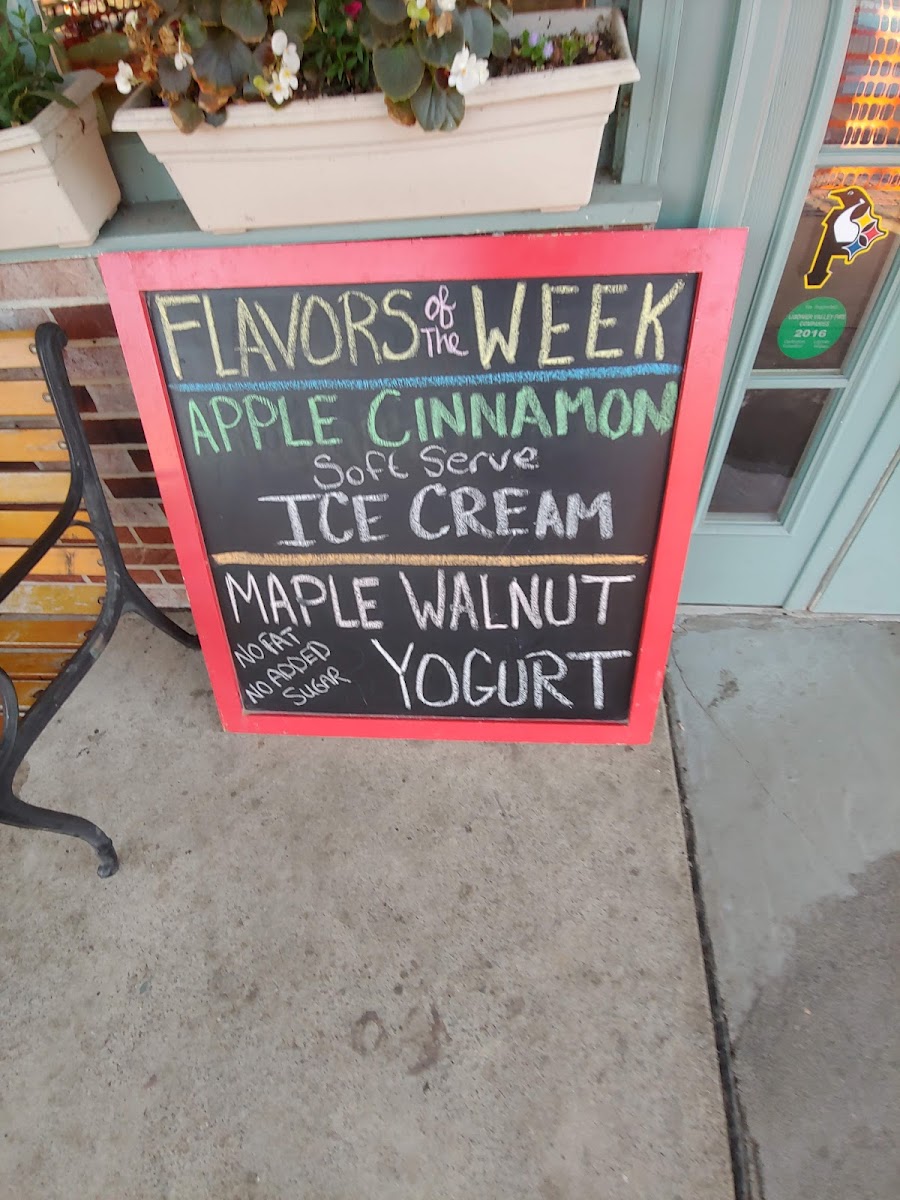 FLAVORS of The WEEK
APPLE CINNAMON
Soft Serve
ICE CREAM
MAPLE WALNUT
NO FAT
NO ADDED
SUGAR
YOGURT
2016